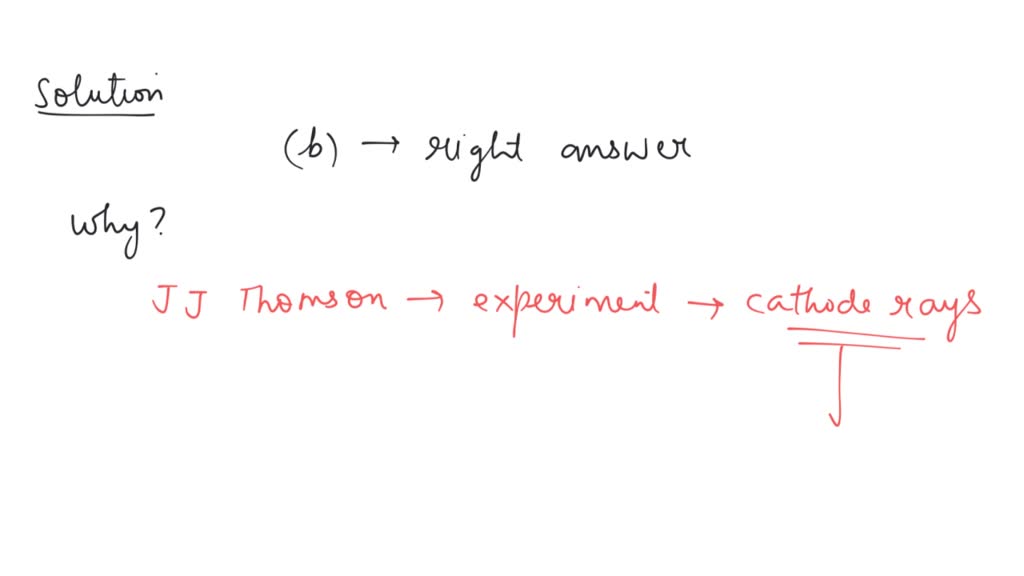 Solution
(b) → right answer
Why?
JJ Thomson → experiment → cathode rays